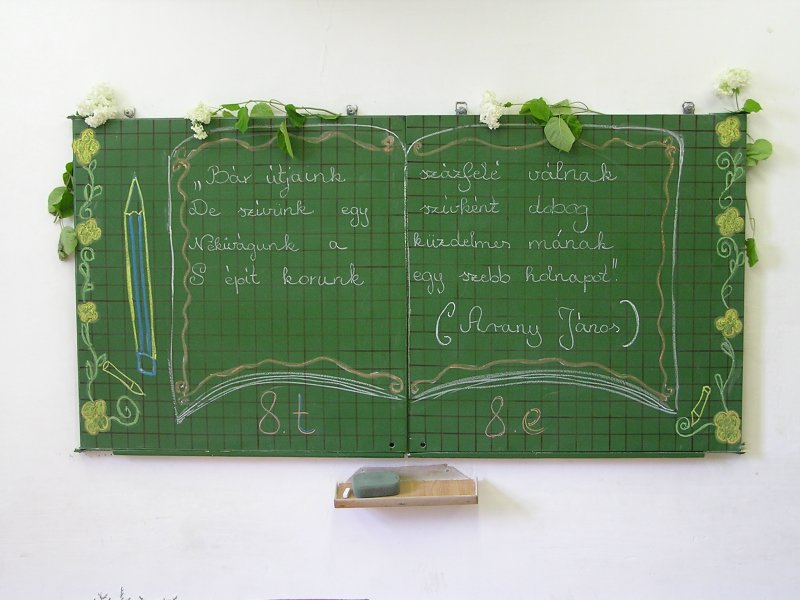 „Bár útjaink százfelé válnak
De szívünk egy szívként dobog
Nekivágunk a küzdelmes mának
S épít korunk egy szebb holnapot".
(Arany János)
8.t 8.e